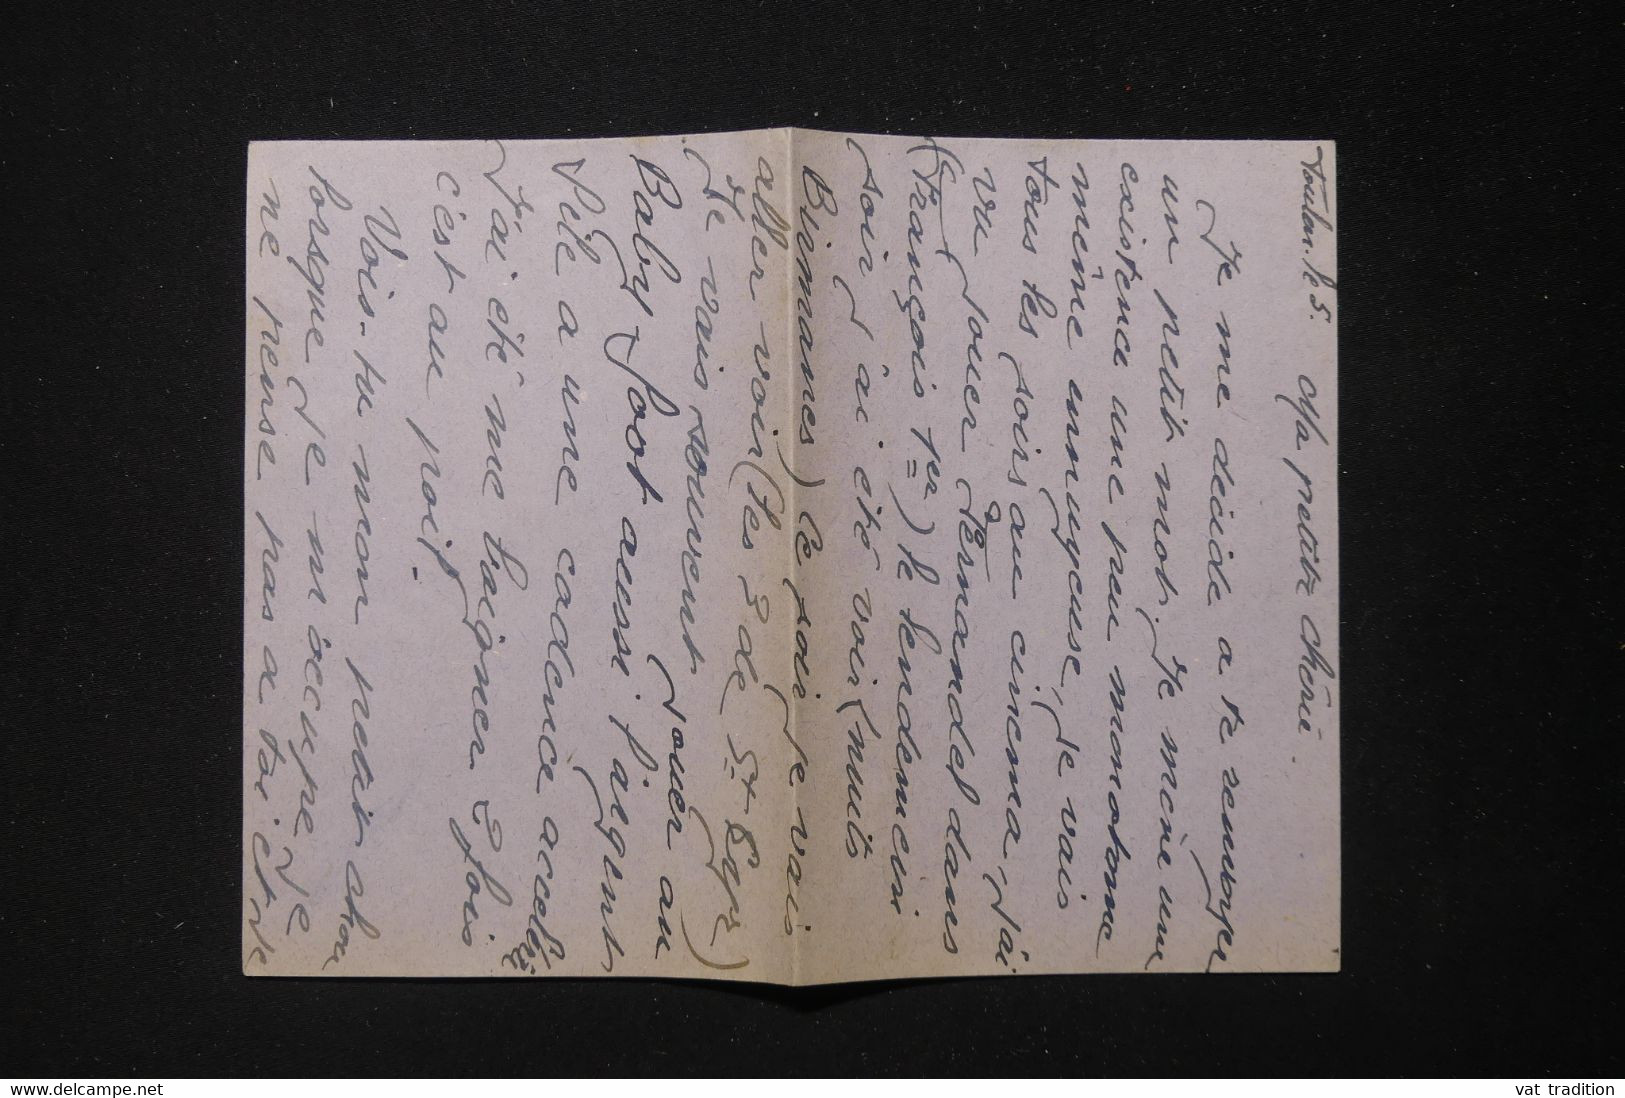 Toulon. le 5. Ma petite chérie.
Je me décide a te renvoyer
un petit mot. Je mène une
existence une peu monotonne
même ennuyeuse, Je vais
tous les soirs au cinema, J'ai
vu Jouer Fernandel dans
(François 1er) le lendemain
soir J'ai été voir (nuits
Birmanes) Ce soir Je vais
aller voir (les 3 de St Cyr)
Je vais souvent Jouer au
Baby foot aussi l'argent
file a une cadence accélérée
J'ai été me baigner 2 fois
c'est au poil.
Vois-tu mon petit chou
lorsque Je m'occupe Je
ne pense pas a toi c'est le
www.delcampe.net
vat tradition